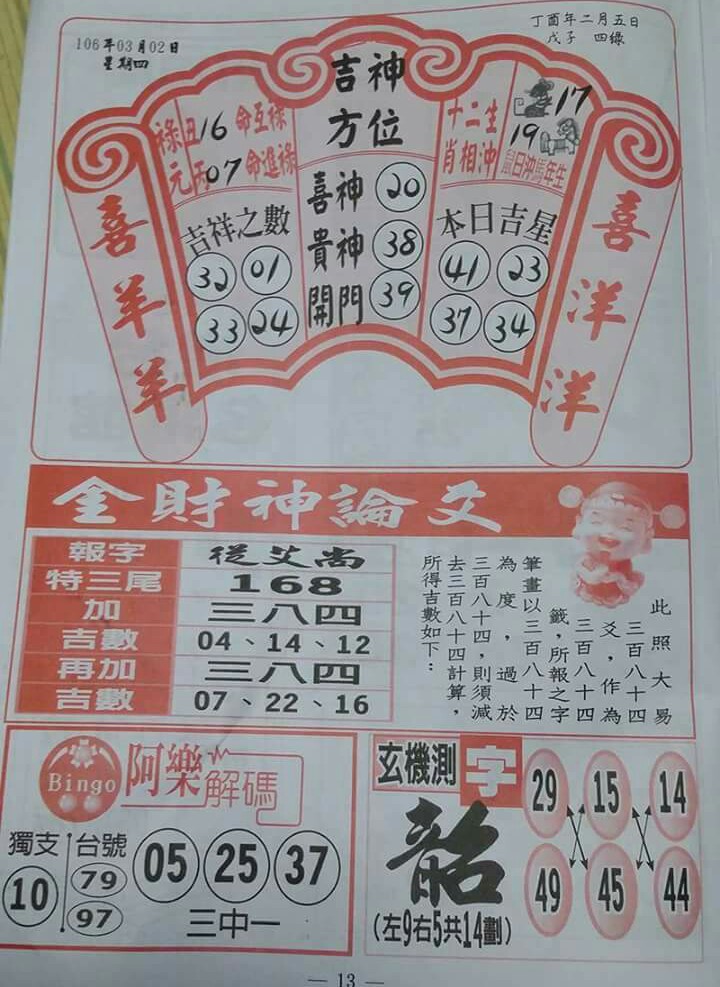 106年03月02日
星期四
丁酉年二月五日
戊子 四綠
吉神
方位
喜神 20
貴神 38
開門 39
祿元
丑16命互祿
丙07命進祿
吉祥之數
32 01
33 24
十二生
肖相沖
17
19
鼠日沖馬年生
本日吉星
41 23
37 34
喜羊羊
喜洋洋
金財神論爻
報字 從艾尚
特三尾 168
加 三八四
吉數 04、14、12
再加 三八四
吉數 07、22、16
此照大易
三百八十四
爻，作為
三百八十四
籤，所報之字
筆畫以三百八十四
為度，過於
三百八十四，則須減
去三百八十四計算，
所得吉數如下：
Bingo
阿樂解碼
獨支
10
台號
79
97
05 25 37
三中一
玄機測字
韶
(左9右5共14劃)
29 15 14
49 45 44
— 13 —